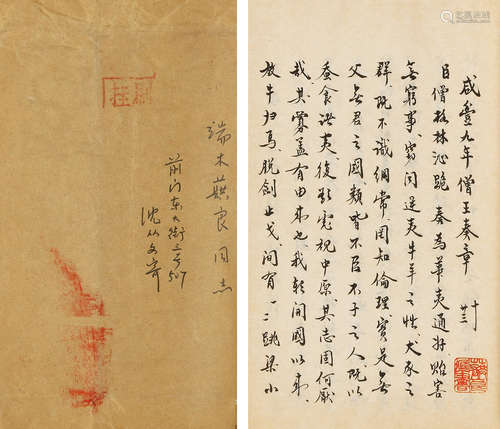 端木蕻良同志
前门东大街三号507
沈从文寄
咸豐九年僧王奏章
臣僧格林沁跪奏為華夷通好貽害
無窮事竊闻逆夷牛羊之性犬豕之
群既不識綱常罔知倫理實是無
父無君之國類皆不臣不子之人既以
蚕食諸夷復窥視中原其志固何厭
哉其蓋有由来也我朝開國以来
放牛归馬脱劍止戈间有一二跳梁小